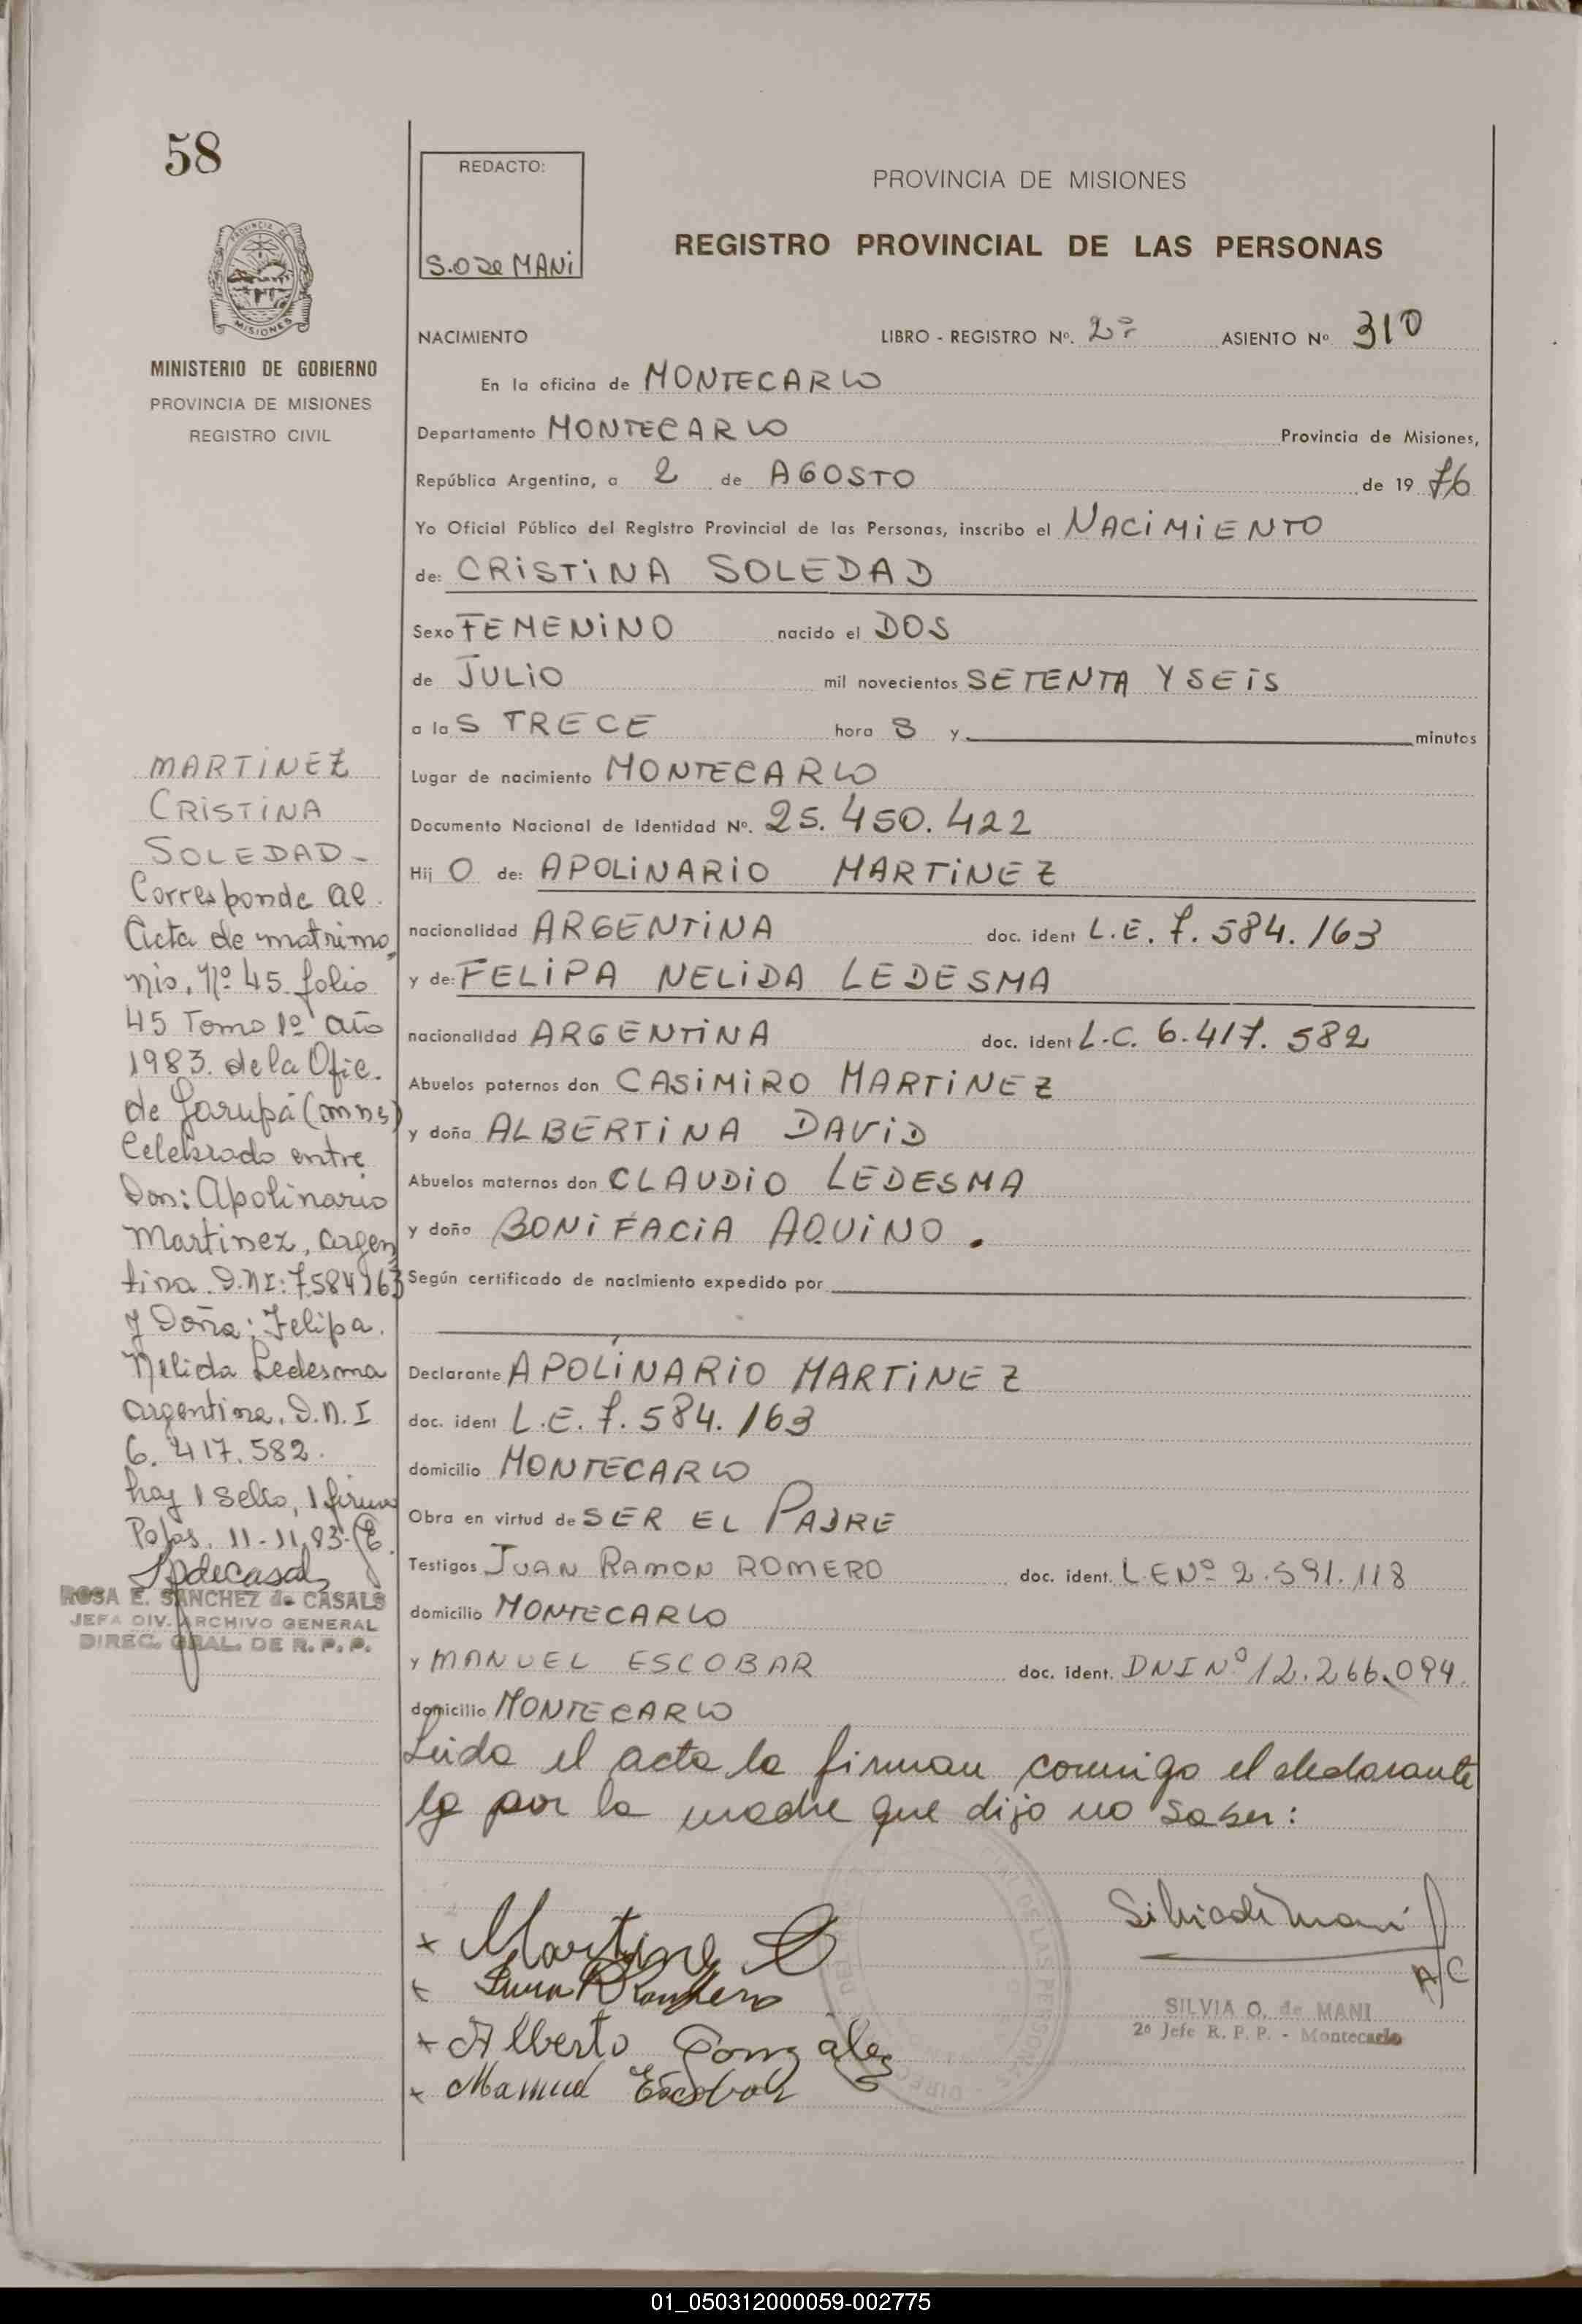 58
REDACTO:
S.O de MANI
PROVINCIA DE MISIONES
REGISTRO PROVINCIAL DE LAS PERSONAS
PROVINCIA DE
MISIONES
MINISTERIO DE GOBIERNO
PROVINCIA DE MISIONES
REGISTRO CIVIL
NACIMIENTO LIBRO - REGISTRO Nº. 2º ASIENTO Nº 310
En la oficina de MONTECARLO
Departamento MONTECARLO Provincia de Misiones,
República Argentina, a 2 de AGOSTO de 19 76
Yo Oficial Público del Registro Provincial de las Personas, inscribo el NACIMIENTO
de: CRISTINA SOLEDAD
Sexo FEMENINO nacido el DOS
de JULIO mil novecientos SETENTA Y SEIS
a las TRECE hora S y minutos
Lugar de nacimiento MONTECARLO
Documento Nacional de Identidad Nº. 25.450.422
Hij O de: APOLINARIO MARTINEZ
nacionalidad ARGENTINA doc. ident L.E. 7.584.163
y de: FELIPA NELIDA LEDESMA
nacionalidad ARGENTINA doc. ident L.C. 6.417.582
Abuelos paternos don CASIMIRO MARTINEZ
y doña ALBERTINA DAVID
Abuelos maternos don CLAUDIO LEDESMA
y doña BONIFACIA AQUINO.
Según certificado de nacimiento expedido por
Declarante APOLINARIO MARTINEZ
doc. ident L.E. 7.584.163
domicilio MONTECARLO
Obra en virtud de SER EL PADRE
Testigos JUAN RAMON ROMERO doc. ident. L.E Nº 2.591.118
domicilio MONTECARLO
y MANUEL ESCOBAR doc. ident. DNI Nº 12.266.094.
domicilio MONTECARLO
Leida el acta la firman conmigo el declarante
por la madre que dijo no saber:
MARTINEZ
CRISTINA
SOLEDAD-
Corresponde al
Acta de matrimo
nio, Nº 45 folio
45 Tomo 1º año
1983. de la Ofic.
de Garupá (mnes)
Celebrado entre
Don: Apolinario
Martinez, argen
tina D.N.I: 7584163
y Doña: Felipa.
Nelida Ledesma
argentina. D.N.I
6.417.582.
hay 1 sello, 1 firma
Pdas. 11-11,83.
ROSA E. SANCHEZ de CASALS
JEFA DIV. ARCHIVO GENERAL
DIREC. GRAL. DE R. P. P.
x Martinez
x Juan R Romero
x Alberto Gonzalez
x Manuel Escobar
Silvia de Mani
A/C
SILVIA O. de MANI
2º Jefe R. P. P. - Montecarlo
DE LAS PERSONAS
01_050312000059-002775